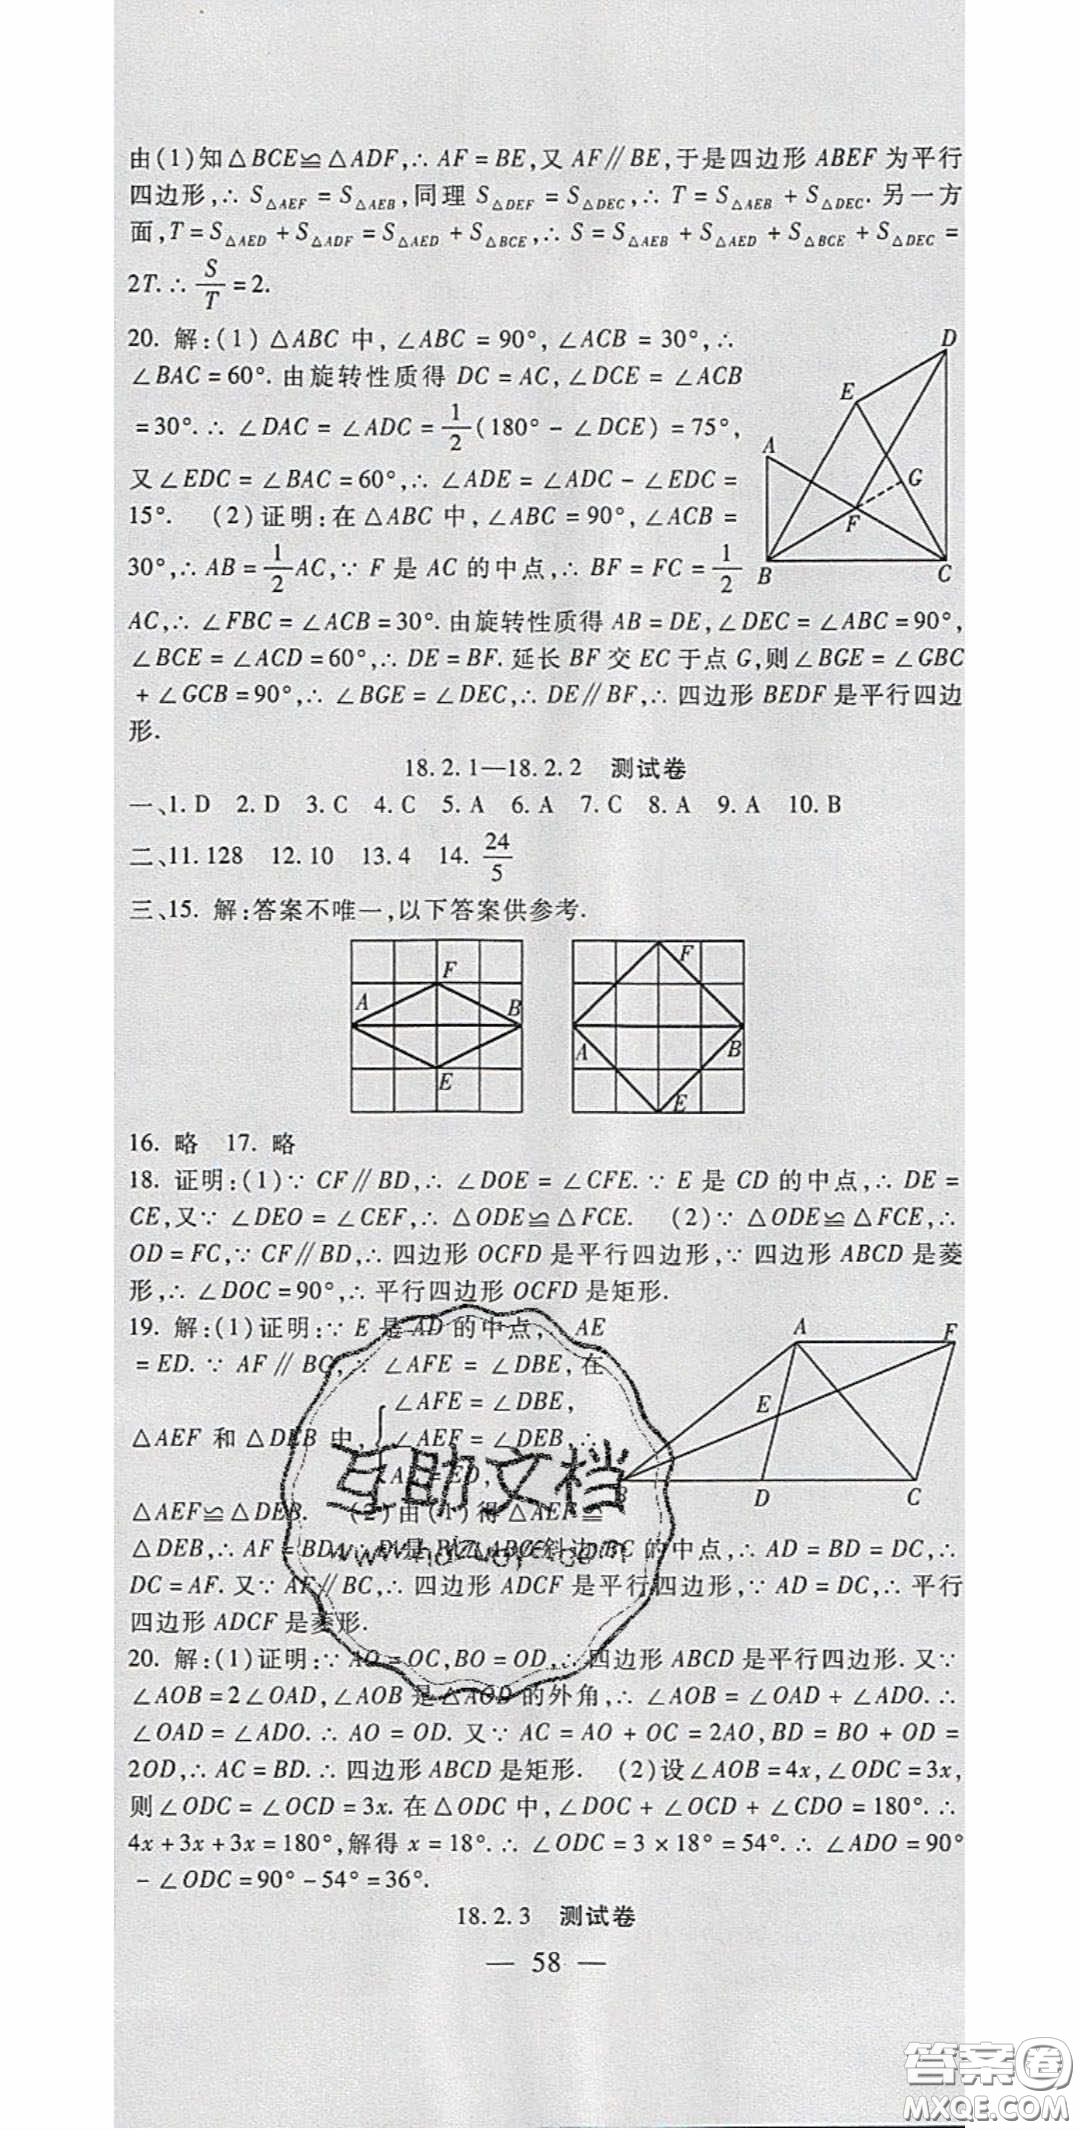 由(1)知△BCE≌△ADF,∴ AF=BE,又 AF∥BE,于是四边形 ABEF 为平行
四边形,∴ S△AEF=S△AEB,同理 S△DEF=S△DEC,∴ T=S△AEB+S△DEC. 另一方
面,T=S△AED+S△ADF=S△AED+S△BCE,∴ S=S△AEB+S△AED+S△BCE+S△DEC=
2T.∴ S/T=2.
20. 解:(1) △ABC 中, ∠ABC=90°, ∠ACB=30°,∴
∠BAC=60°. 由旋转性质得 DC=AC,∠DCE=∠ACB
=30°.∴ ∠DAC=∠ADC=1/2(180°-∠DCE)=75°,
又∠EDC=∠BAC=60°,∴ ∠ADE=∠ADC-∠EDC=
15°. (2)证明:在△ABC 中,∠ABC=90°,∠ACB=
30°,∴ AB=1/2AC,∵ F 是 AC 的中点,∴ BF=FC=1/2
AC,∴ ∠FBC=∠ACB=30°.由旋转性质得 AB=DE,∠DEC=∠ABC=90°,
∠BCE=∠ACD=60°,∴ DE=BF. 延长 BF 交 EC 于点 G,则∠BGE=∠GBC
+∠GCB=90°,∴ ∠BGE=∠DEC,∴ DE∥BF,∴ 四边形 BEDF 是平行四边
形.
D
E
A
G
F
B
C
18.2.1—18.2.2 测试卷
一、1. D 2. D 3. C 4. C 5. A 6. A 7. C 8. A 9. A 10. B
二、11. 128 12. 10 13. 4 14. 24/5
三、15. 解:答案不唯一,以下答案供参考.
F
A
B
E
F
A
B
E
16. 略 17. 略
18. 证明:(1)∵ CF∥BD,∴ ∠DOE=∠CFE.∵ E 是 CD 的中点,∴ DE=
CE,又∵ ∠DEO=∠CEF,∴ △ODE≌△FCE. (2)∵ △ODE≌△FCE,∴
OD=FC,∵ CF∥BD,∴ 四边形 OCFD 是平行四边形,∵ 四边形 ABCD 是菱
形,∴ ∠DOC=90°,∴ 平行四边形 OCFD 是矩形.
19. 解:(1)证明:∵ E 是 AD 的中点, AE
=ED.∵ AF∥BC,∴ ∠AFE=∠DBE,在
△AEF 和△DEB 中,{∠AFE=∠DBE,
∠AEF=∠DEB,∴
AE=ED,
△AEF≌△DEB. (2)由(1)得△AEF≌
△DEB,∴ AF=BD,∵ D 是 Rt△ABC 斜边 BC 的中点,∴ AD=BD=DC,∴
DC=AF. 又∵ AF∥BC,∴ 四边形 ADCF 是平行四边形,∵ AD=DC,∴ 平行
四边形 ADCF 是菱形.
A
F
E
B
D
C
20. 解:(1)证明:∵ AO=OC,BO=OD,∴ 四边形 ABCD 是平行四边形. 又∵
∠AOB=2∠OAD,∠AOB 是△AOD 的外角,∴ ∠AOB=∠OAD+∠ADO.∴
∠OAD=∠ADO.∴ AO=OD. 又∵ AC=AO+OC=2AO,BD=BO+OD=
2OD,∴ AC=BD.∴ 四边形 ABCD 是矩形. (2)设∠AOB=4x,∠ODC=3x,
则∠ODC=∠OCD=3x. 在△ODC 中,∠DOC+∠OCD+∠CDO=180°.∴
4x+3x+3x=180°,解得 x=18°.∴ ∠ODC=3×18°=54°.∴ ∠ADO=90°
-∠ODC=90°-54°=36°.
18.2.3 测试卷
— 58 —
互助文档
答案卷
MXQE.COM